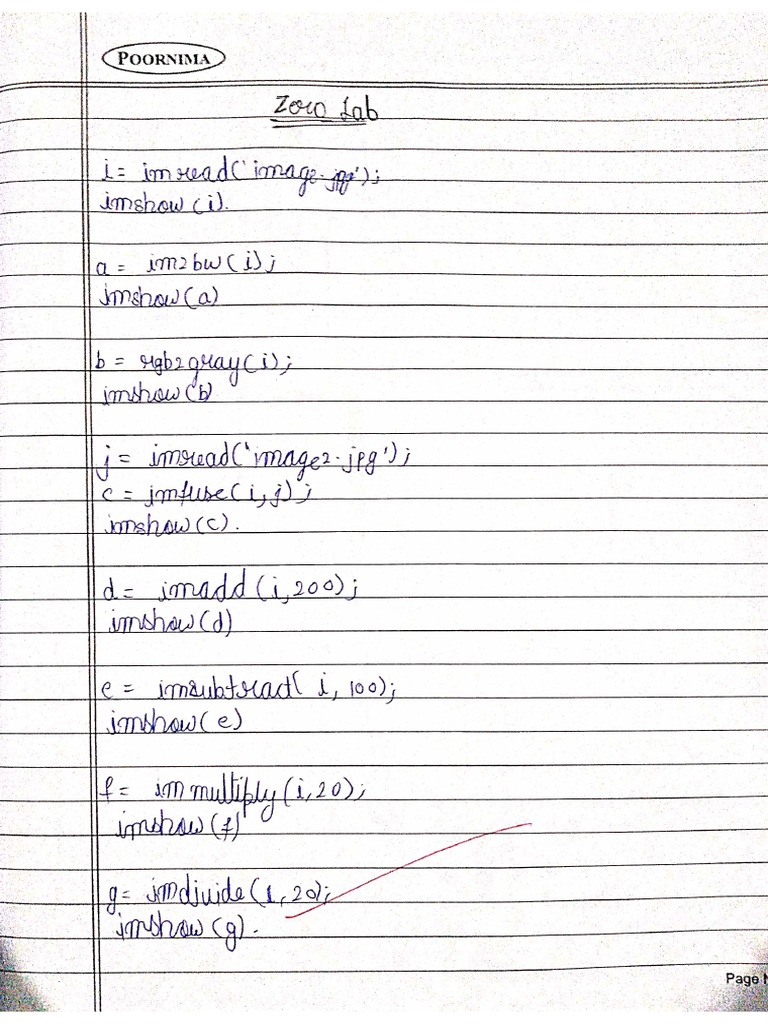 POORNIMA
Zero Lab
i = imread('image.jpg');
imshow(i).
a = im2bw(i);
imshow(a)
b = rgb2gray(i);
imshow(b)
j = imread('image2.jpg');
c = imfuse(i,j);
imshow(c).
d = imadd(i,200);
imshow(d)
e = imsubtract( i, 100);
imshow(e)
f = immultiply(i,20);
imshow(f)
g = imdivide(i,20);
imshow(g).
Page